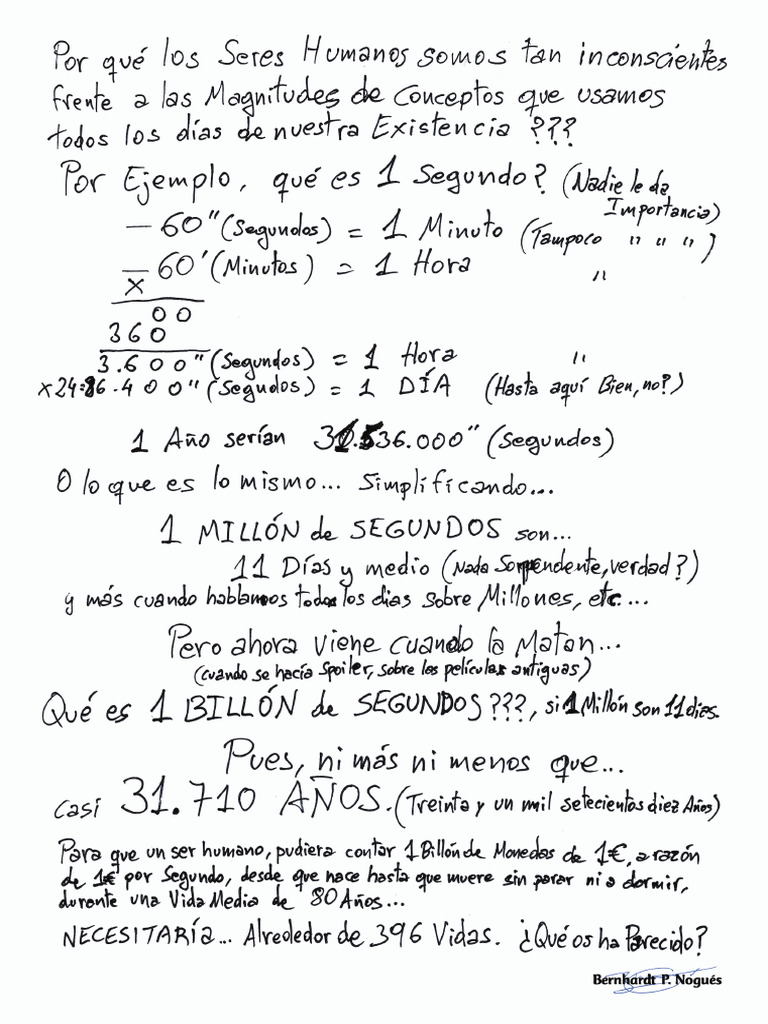 Por qué los Seres Humanos somos tan inconscientes
frente a las Magnitudes de Conceptos que usamos
todos los días de nuestra Existencia ???
Por Ejemplo, qué es 1 Segundo? (Nadie le da
Importancia)
— 60" (Segundos) = 1 Minuto (Tampoco " " ")
— 60' (Minutos) = 1 Hora "
x
00
360
3.600" (Segundos) = 1 Hora "
x24=86.400" (Segundos) = 1 DÍA (Hasta aquí Bien, no?)
1 Año serían 31.536.000" (Segundos)
O lo que es lo mismo... Simplificando...
1 MILLÓN de SEGUNDOS son...
11 Días y medio (Nada Sorpendente, verdad?)
y más cuando hablamos todos los dias sobre Millones, etc...
Pero ahora viene cuando la Matan...
(cuando se hacía Spoiler, sobre las películas antiguas)
Qué es 1 BILLÓN de SEGUNDOS ???, si 1 Millón son 11 dias.
Pues, ni más ni menos que...
casi 31.710 AÑOS. (Treinta y un mil setecientos diez Años)
Para que un ser humano, pudiera contar 1 Billón de Monedas de 1€, a razón
de 1€ por Segundo, desde que nace hasta que muere sin parar ni a dormir,
durante una Vida Media de 80 Años...
NECESITARÍA... Alrededor de 396 Vidas. ¿Qué os ha Parecido?
Bernhardt P. Nogués